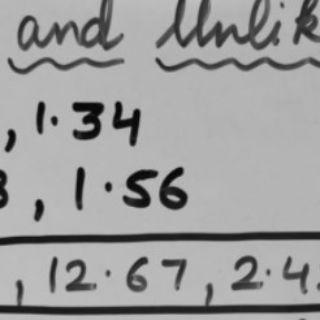 and Unlik
, 1.34
, 1.56
, 12.67, 2.4